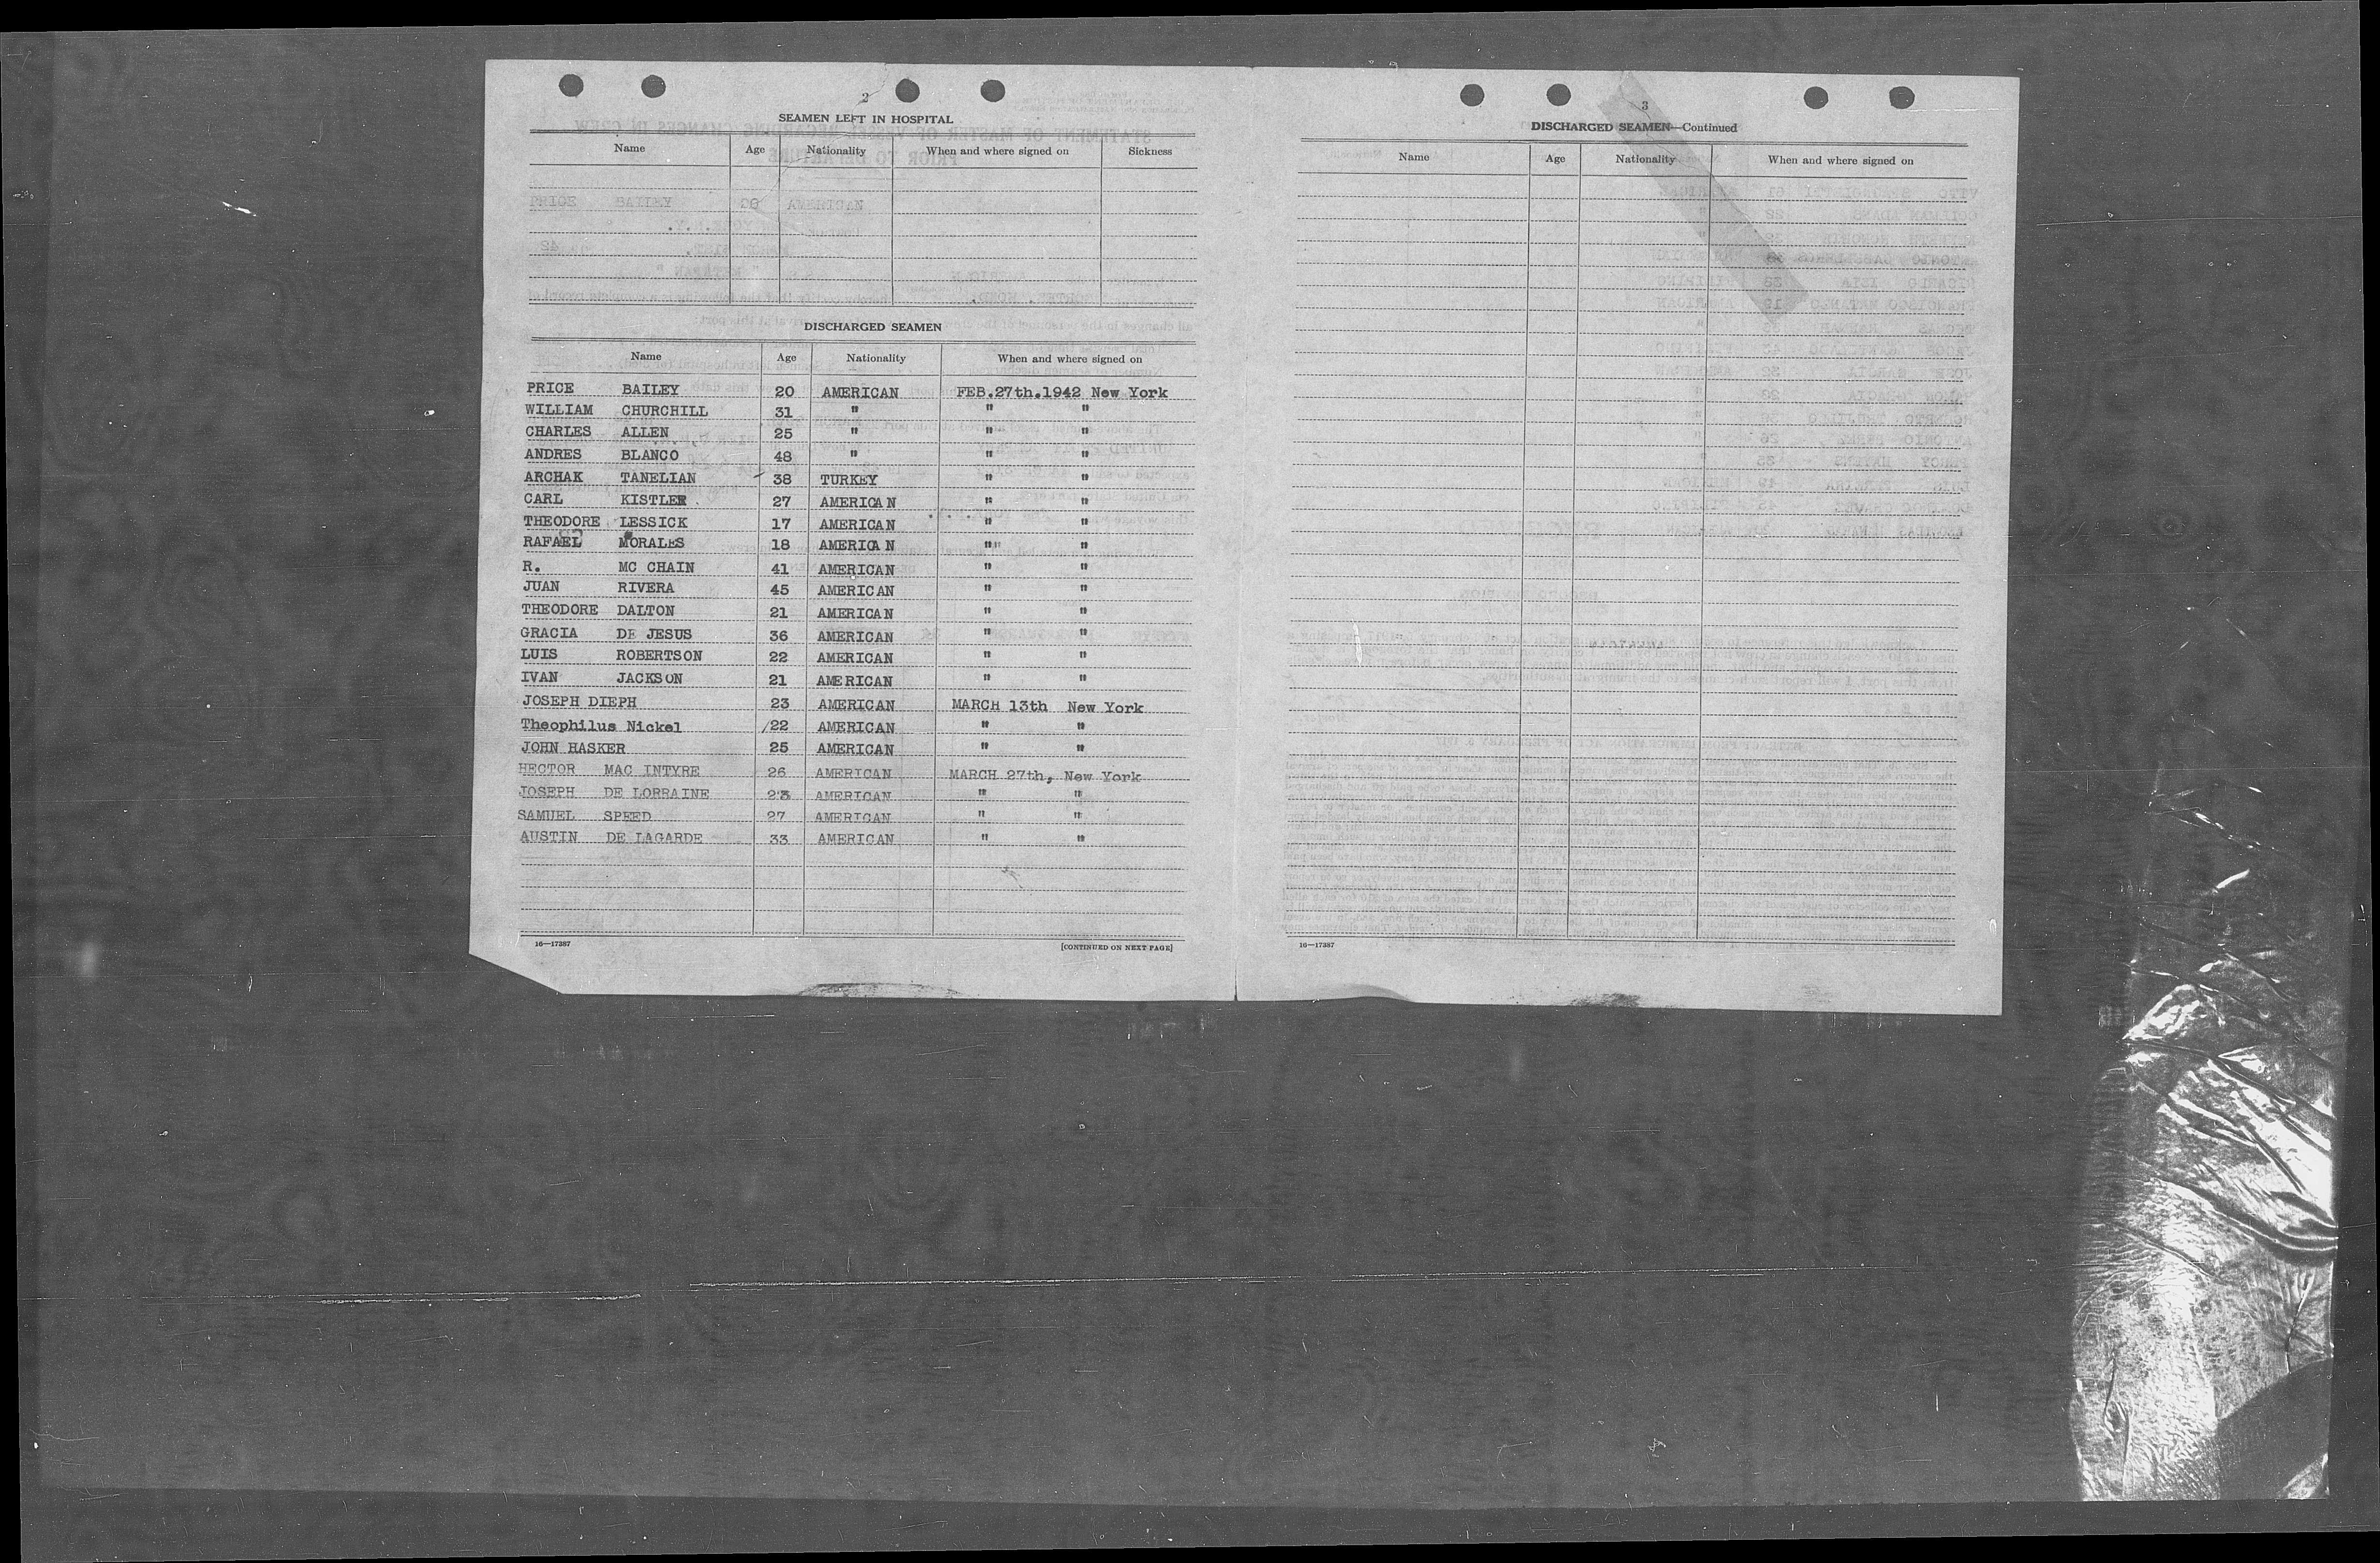 2
SEAMEN LEFT IN HOSPITAL
Name Age Nationality When and where signed on Sickness
DISCHARGED SEAMEN
Name Age Nationality When and where signed on
PRICE BAILEY 20 AMERICAN FEB.27th.1942 New York
WILLIAM CHURCHILL 31 " " "
CHARLES ALLEN 25 " " "
ANDRES BLANCO 48 " " "
ARCHAK TANELIAN 38 TURKEY " "
CARL KISTLER 27 AMERICAN " "
THEODORE LESSICK 17 AMERICAN " "
RAFAEL MORALES 18 AMERICAN "" "
R. MC CHAIN 41 AMERICAN " "
JUAN RIVERA 45 AMERICAN " "
THEODORE DALTON 21 AMERICAN " "
GRACIA DE JESUS 36 AMERICAN " "
LUIS ROBERTSON 22 AMERICAN " "
IVAN JACKSON 21 AMERICAN " "
JOSEPH DIEPH 23 AMERICAN MARCH 13th New York
Theophilus Nickel /22 AMERICAN " "
JOHN HASKER 25 AMERICAN " "
HECTOR MAC INTYRE 26 AMERICAN MARCH 27th, New York
JOSEPH DE LORRAINE 23 AMERICAN " "
SAMUEL SPEED 27 AMERICAN " "
AUSTIN DE LAGARDE 33 AMERICAN " "
16—17387 [CONTINUED ON NEXT PAGE]
3
DISCHARGED SEAMEN—Continued
Name Age Nationality When and where signed on
16—17387